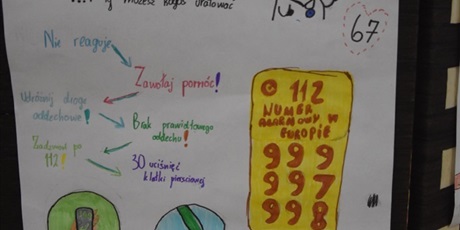 Ty możesz kogoś uratować
67
Nie reaguje
Zawołaj pomóc!
Udrożnij drogi
oddechowe!
Brak prawidłowego
oddechu!
Zadzwoń po
112!
30 uciśnięć
klatki piersiowej
112
NUMER
ALARMOWY W
EUROPIE
999
997
998